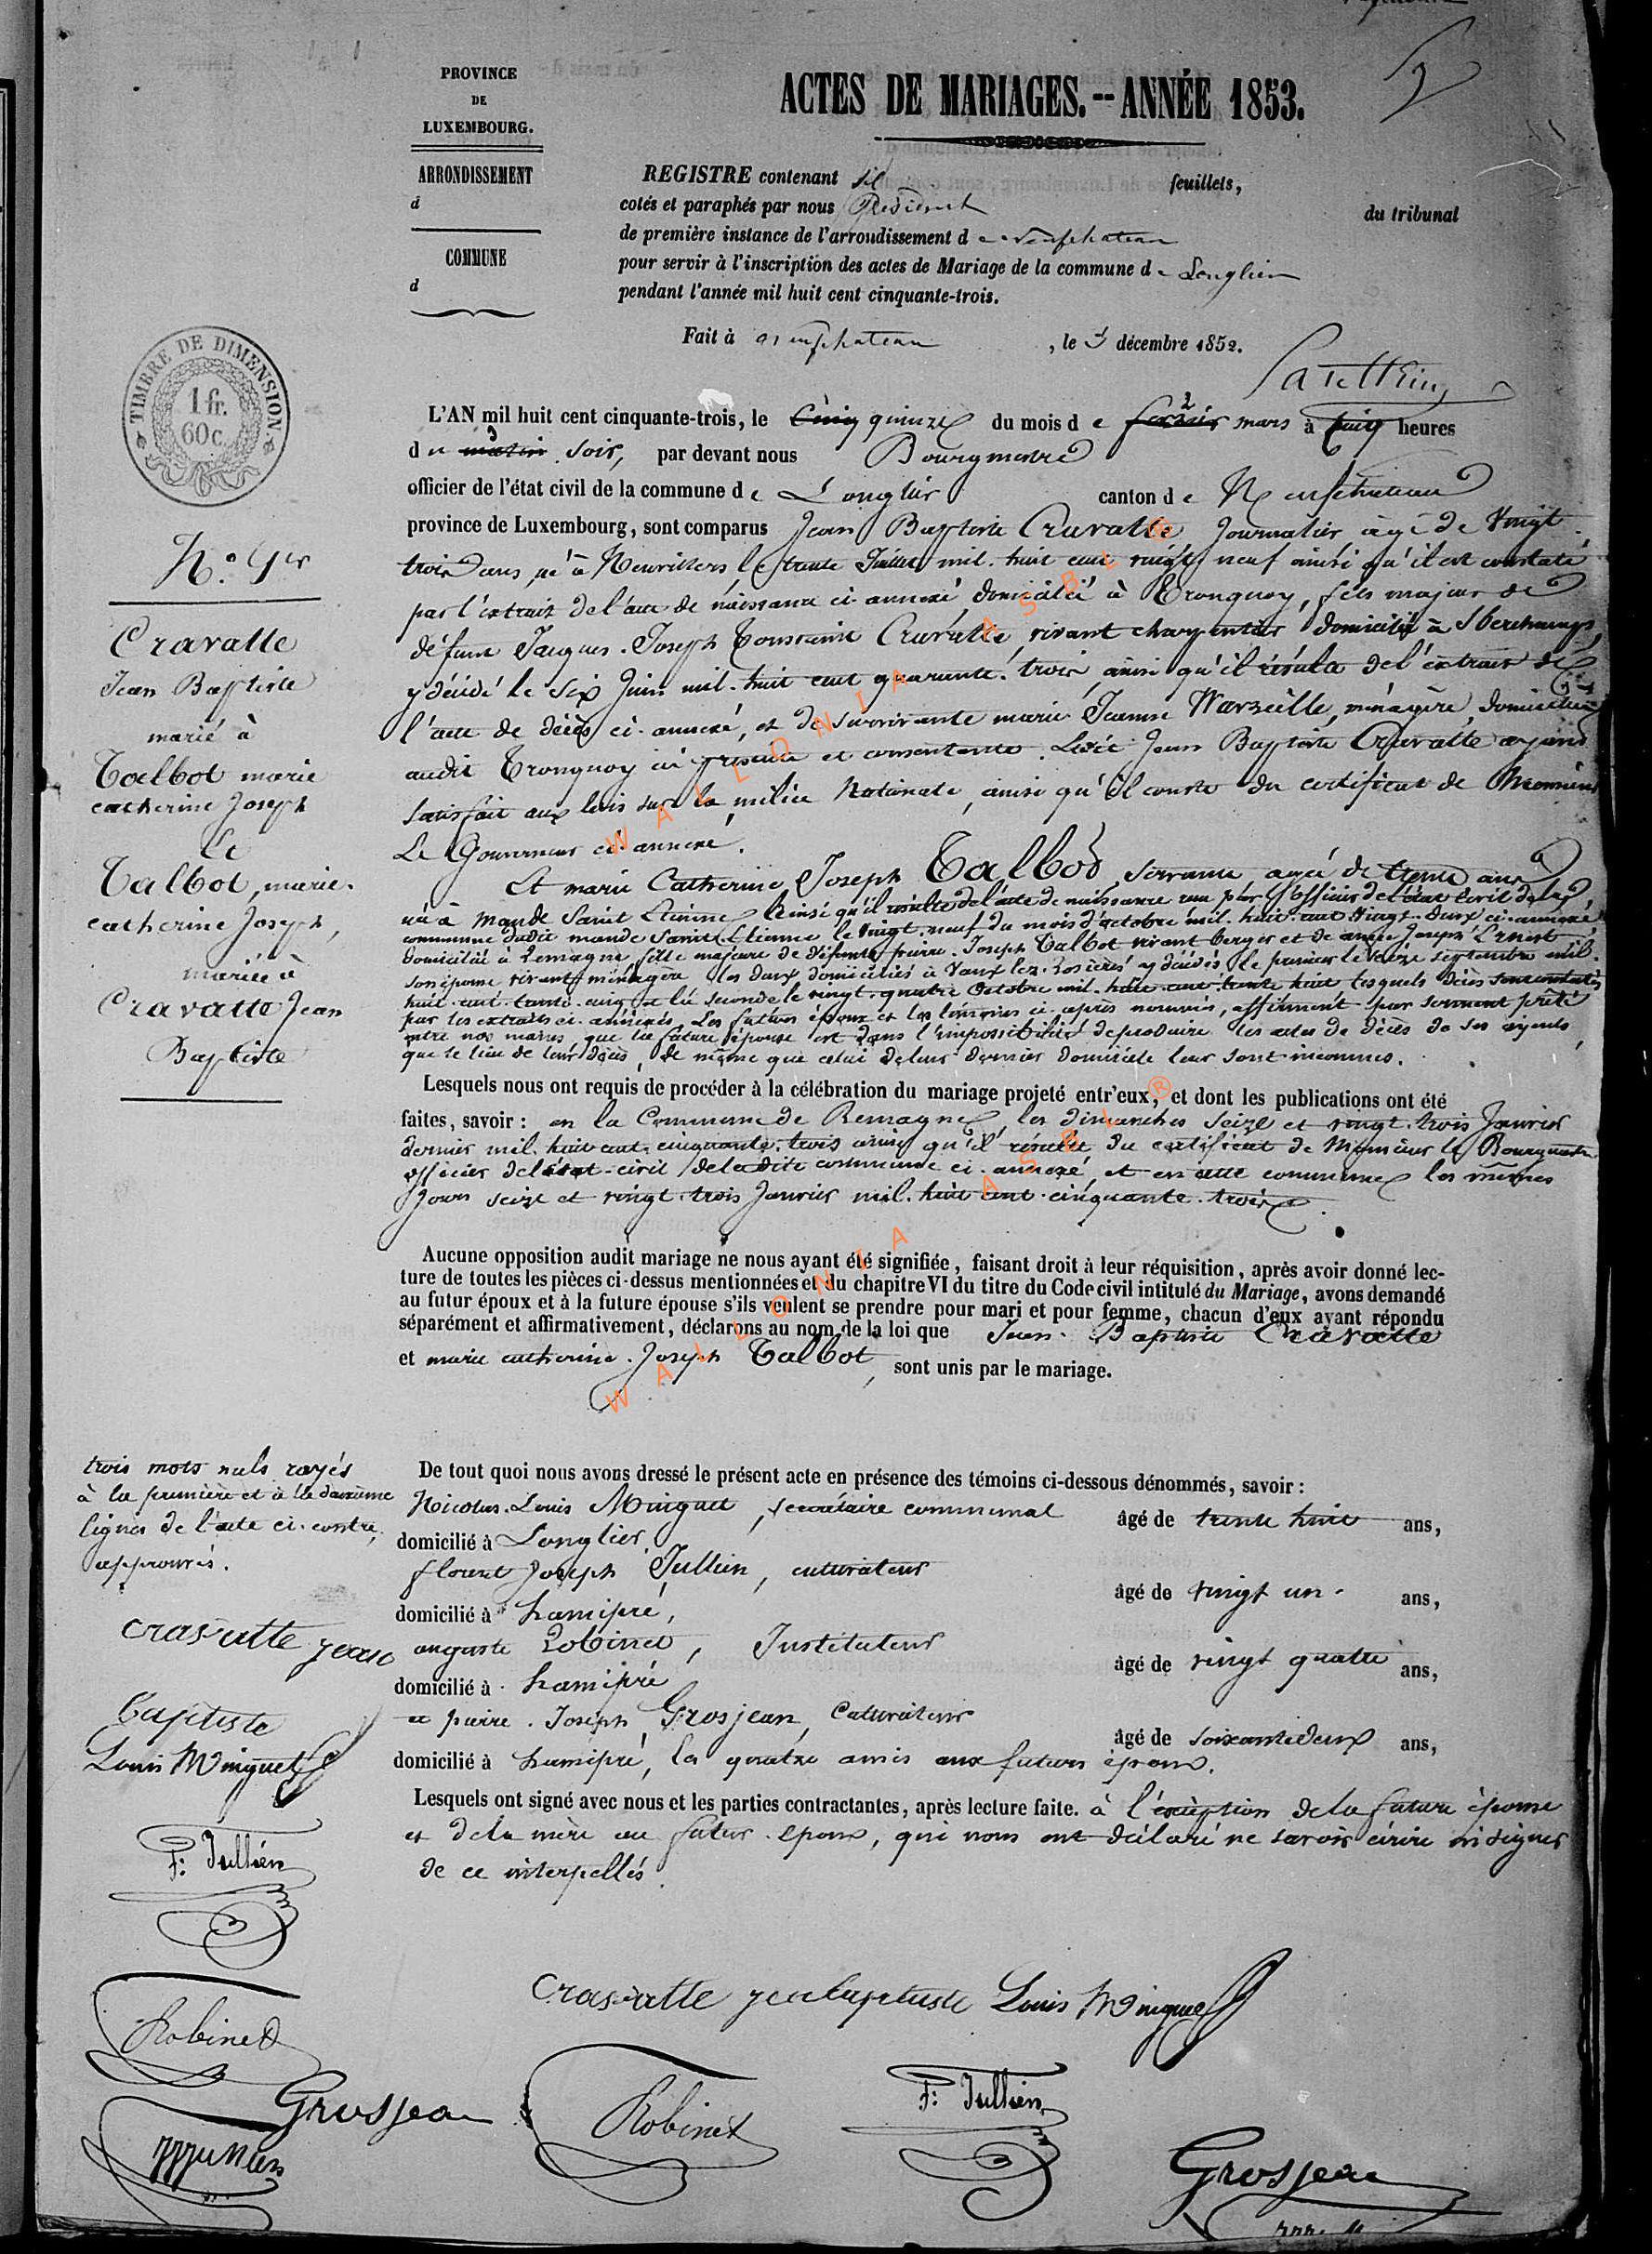 PROVINCE
DE
LUXEMBOURG.
ARRONDISSEMENT
d
COMMUNE
d
ACTES DE MARIAGES.-- ANNÉE 1853.
REGISTRE contenant feuillets,
cotés et paraphés par nous Président du tribunal
de première instance de l'arrondissement de neufchateau
pour servir à l'inscription des actes de Mariage de la commune de Longlier
pendant l'année mil huit cent cinquante-trois.
Fait à neufchateau, le décembre 1852.
TIMBRE DE DIMENSION
1 fr.
60 c.
L'AN mil huit cent cinquante-trois, le Cinq quinze du mois de février mars à cinq heures
du matin soir, par devant nous Bourgmestre
officier de l'état civil de la commune de Longlier canton de Neufchateau
province de Luxembourg, sont comparus Jean Baptiste Cravatte, Journalier, agé de Vingt
trois ans, né à Neuvillers, le trente Juillet mil huit cent vingt neuf ainsi qu'il est constaté
par l'extrait de l'acte de naissance ci-annexé, domicilié à Tronquoy, fils majeur de
défunt Jacques Joseph Toussaint Cravatte, vivant charpentier domicilié à Sberchamps,
y décédé le Six Juin mil huit cent quarante trois, ainsi qu'il résulte de l'extrait de
l'acte de décès ci-annexé, et de survivante marie Jeanne Warzeille, ménagère, domiciliée
audit Tronquoy ici présente et consentante. Ledit Jean Baptiste Cravatte ayant
satisfait aux lois sur la milice Nationale, ainsi qu'il conste du certificat de Monsieur
Le Gouverneur ci-annexé.
Et marie Catherine Joseph Talbot servante agée de trente ans
née à Mande Saint Etienne ainsi qu'il résulte de l'acte de naissance reçu par l'officier de l'état civil de la
commune dudit mande Saint Etienne le vingt-neuf du mois d'octobre mil huit cent vingt-deux ci-annexé,
domiciliée à Remagne fille majeure de défunts pierre Joseph Talbot vivant berger et de Joseph Ernest
son épouse vivante ménagère les deux domiciliés à Vaux lez Rosières y décédés, le premier le seize septembre mil
huit cent trente cinq et la seconde le vingt-quatre octobre mil huit cent trente huit lesquels décès sont constatés
par les extraits ci-annexés. Les futurs époux et les témoins ci-après nommés, affirment par serment prêté
entre nos mains, que la future épouse est dans l'impossibilité de produire les actes de décès de ses ayeuls,
que le lieu de leur décès, de même que celui de leur dernier domicile leur sont inconnus.
Lesquels nous ont requis de procéder à la célébration du mariage projeté entr'eux, et dont les publications ont été
faites, savoir : en la Commune de Remagne, les dimanches seize et vingt-trois Janvier
dernier mil huit cent cinquante trois ainsi qu'il résulte du certificat de Monsieur le Bourgmestre
officier de l'état-civil de ladite commune ci-annexé, et en cette commune les mêmes
Jours seize et vingt-trois Janvier mil huit cent cinquante-trois.
Aucune opposition audit mariage ne nous ayant été signifiée, faisant droit à leur réquisition, après avoir donné lec-
ture de toutes les pièces ci-dessus mentionnées et du chapitre VI du titre du Code civil intitulé du Mariage, avons demandé
au futur époux et à la future épouse s'ils veulent se prendre pour mari et pour femme, chacun d'eux ayant répondu
séparément et affirmativement, déclarons au nom de la loi que Jean Baptiste Cravatte
et marie catherine Joseph Talbot, sont unis par le mariage.
De tout quoi nous avons dressé le présent acte en présence des témoins ci-dessous dénommés, savoir :
Nicolas Louis Minguet, secrétaire communal âgé de trente huit ans,
domicilié à Longlier.
florent Joseph Jullien, cultivateur âgé de vingt un ans,
domicilié à hamipré,
auguste Robinet, Instituteur âgé de vingt quatre ans,
domicilié à hamipré
et pierre Joseph Grosjean, Cultivateur âgé de soixante deux ans,
domicilié à hamipré, les quatre amis aux futurs époux.
Lesquels ont signé avec nous et les parties contractantes, après lecture faite. à l'exception de la future épouse
et de la mère au futur époux, qui nous ont déclaré ne savoir écrire ni signer
de ce interpellés.
N.° 1er
Cravatte
Jean Baptiste
marié à
Talbot marie
catherine Joseph
Et
Talbot, marie
catherine Joseph,
mariée à
Cravatte Jean
Baptiste
trois mots nuls rayés
à la première et à la deuxième
lignes de l'acte ci-contre,
approuvés.
cravatte jean
baptiste
Louis Minguet
F: Jullien
Robinet
Grosjean
cravatte jeabaptiste Louis Minguet
Robinet
F: Jullien
Grosjean
WALLONIA ASBL ®
WALLONIA ASBL ®